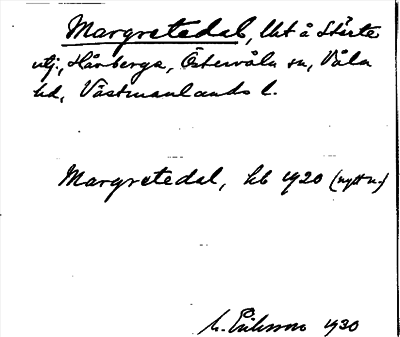 Margretedal, lht å Stärte
utj., Hårberga, Östervåla sn, Våla
hd, Västmanlands l.
Margretedal, kb 1920 (nytt n.)
Eriksson 1930